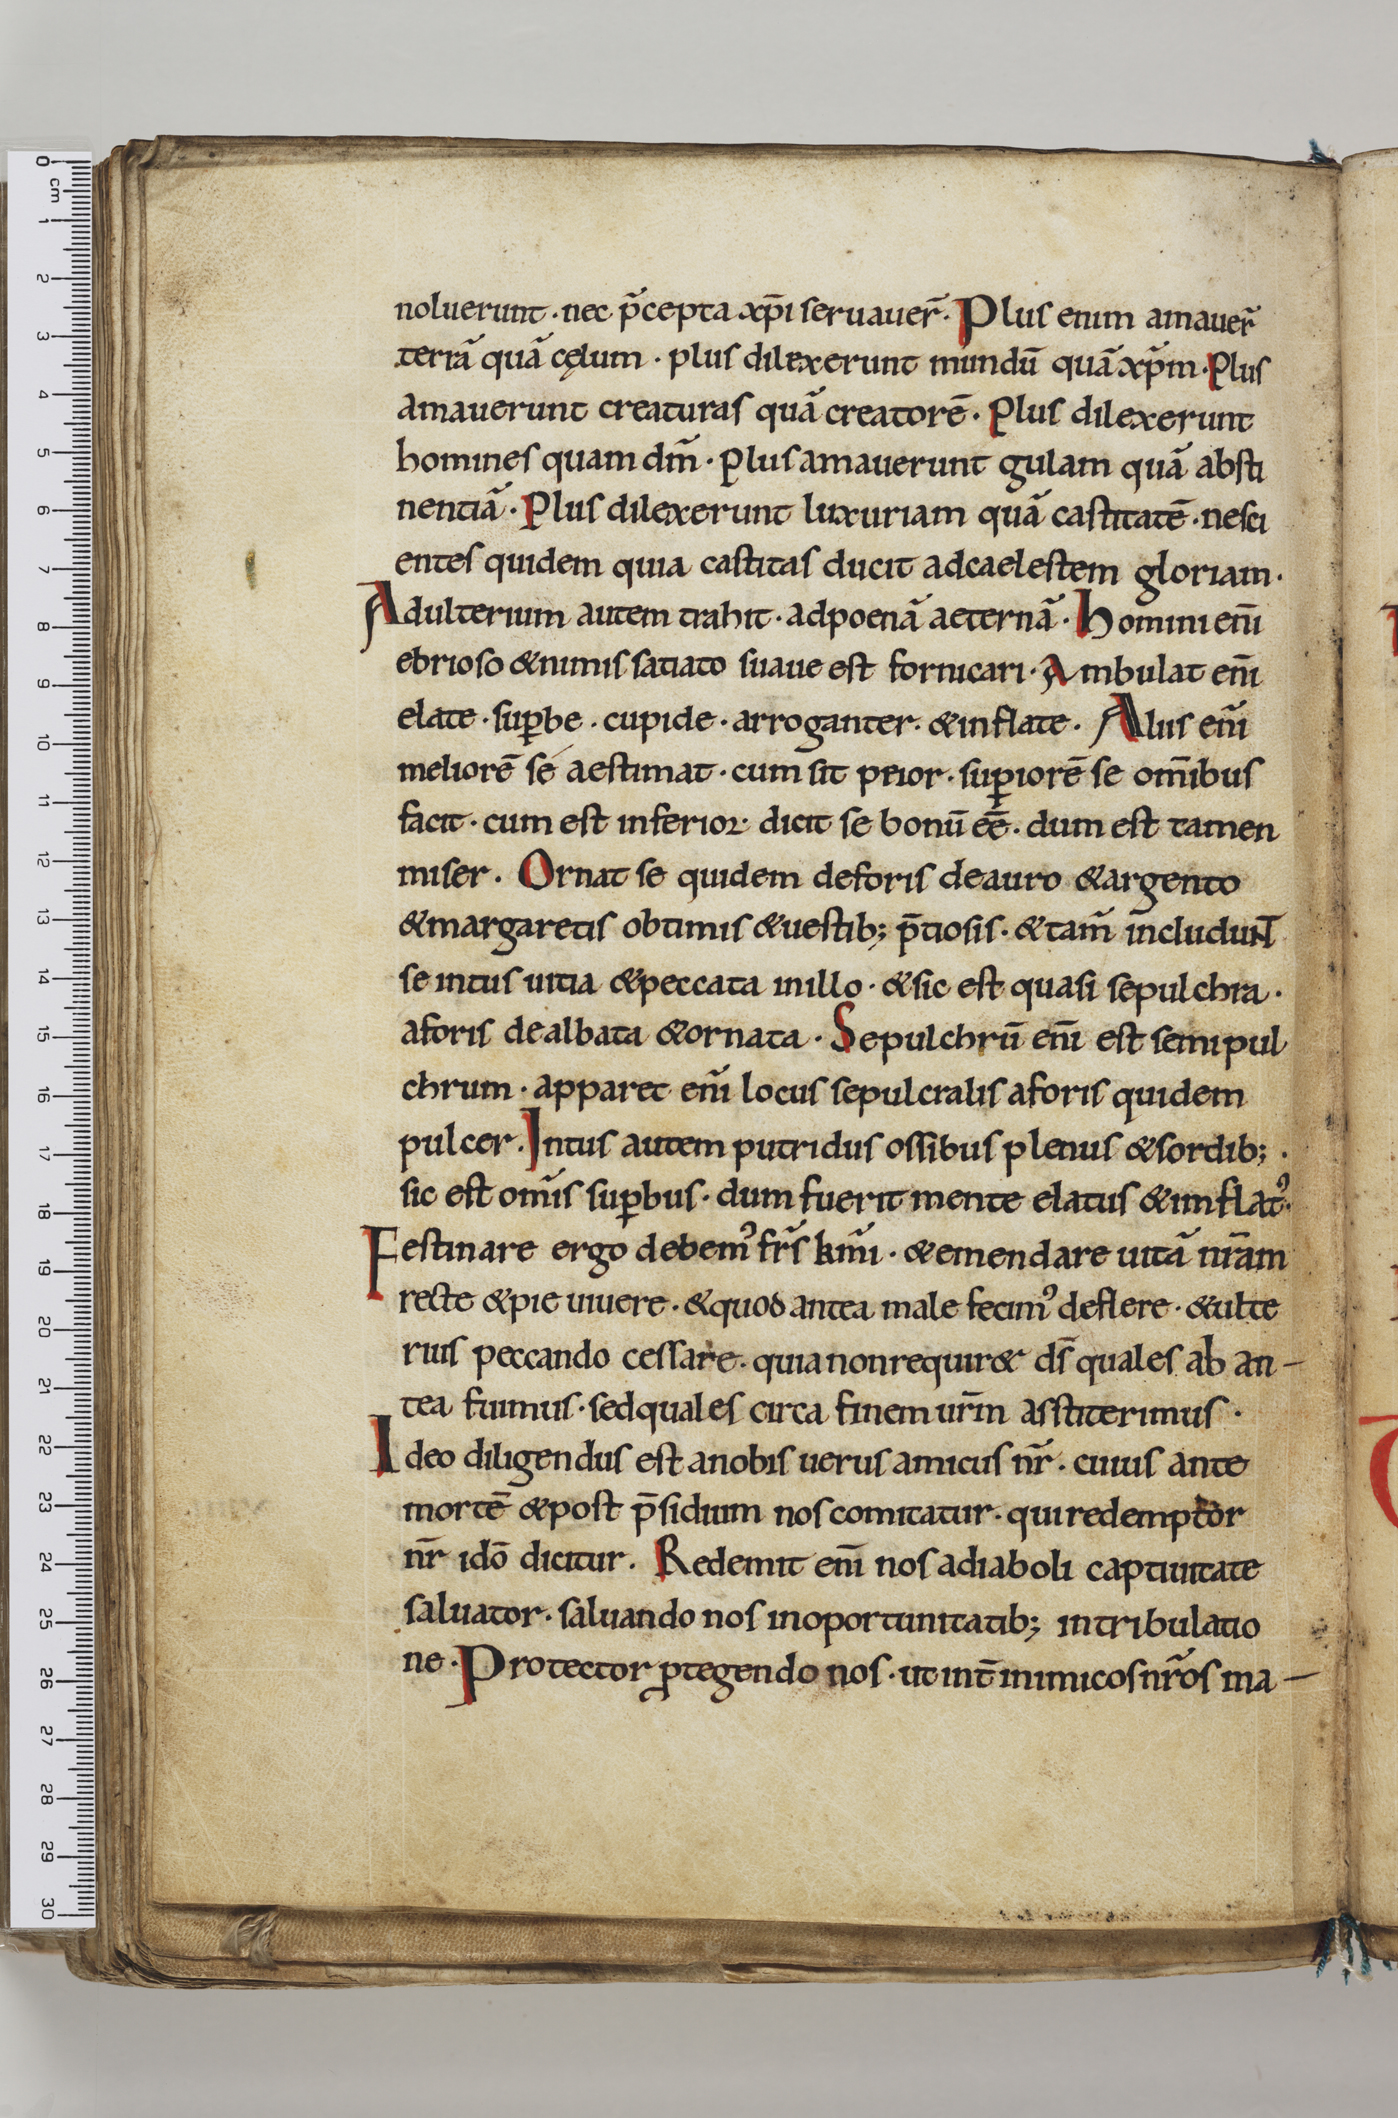 noluerunt · nec p̃cepta xp̄i seruauer̃ · Plus enim amauer̃
terrã quã cęlum · plus dilexerunt mundū quã xp̃m · Plus
amauerunt creaturas quã creatorē · Plus dilexerunt
homines quam dm̃ · Plus amauerunt gulam quã absti
nentiã · Plus dilexerunt luxuriam quã castitatē · nesci
entes quidem quia castitas ducit adcaelestem gloriam ·
Adulterium autem trahit · adpoenã aeternã · Homini eni̅
ebrioso &nimis satiato suaue est fornicari · Ambulat eni̅
elate · suꝑbe · cupide · arroganter · &inflate · Alus eni̅
meliorē sé aestimat · cum sit peior · suꝑiorē se om̅ibus
facit · cum est inferior · dicit se bonū ee̅ · dum est tamen
miser · Ornat se quidem deforis deauro &argento
&margaretis obtimis &uestib; p̄tiosis · &tam̃ includunt
se intus uitia &peccata inillo · &sic est quasi sepulchra ·
aforis dealbata &ornata · Sepulchrū eni̅ est semipul
chrum · apparet eni̅ locus sepulcralis aforis quidem
pulcer · Intus autem putridus ossibus plenus &sordib; ·
sic est omi̅s suꝑbus · dum fuerit mente elatus &inflatꝰ ·
Festinare ergo debemꝰ fr̃s kmĩ · &emendare uitã nr̃am
recte &pie uiuere · &quod antea male fecimꝰ deflere · &ulte
rius peccando cessare · quia nonrequir& ds̄ quales ab an-
tea fuimus · sedquales circa finem ur̄m asstiterimus ·
Ideo diligendus est anobis uerus amicus nr̃ · cuius ante
mortē &post p̄sidium nos comitatur · quiredemptor
nr̄ idō dicitur · Redemit eni̅ nos adiaboli captiuitate
saluator · saluando nos inoportunitatib; intribulatio
ne · Protector ꝓtegendo nos · ut int̄ inimicos nr̃os ma-
0 cm 1 2 3 4 5 6 7 8 9 10 11 12 13 14 15 16 17 18 19 20 21 22 23 24 25 26 27 28 29 30